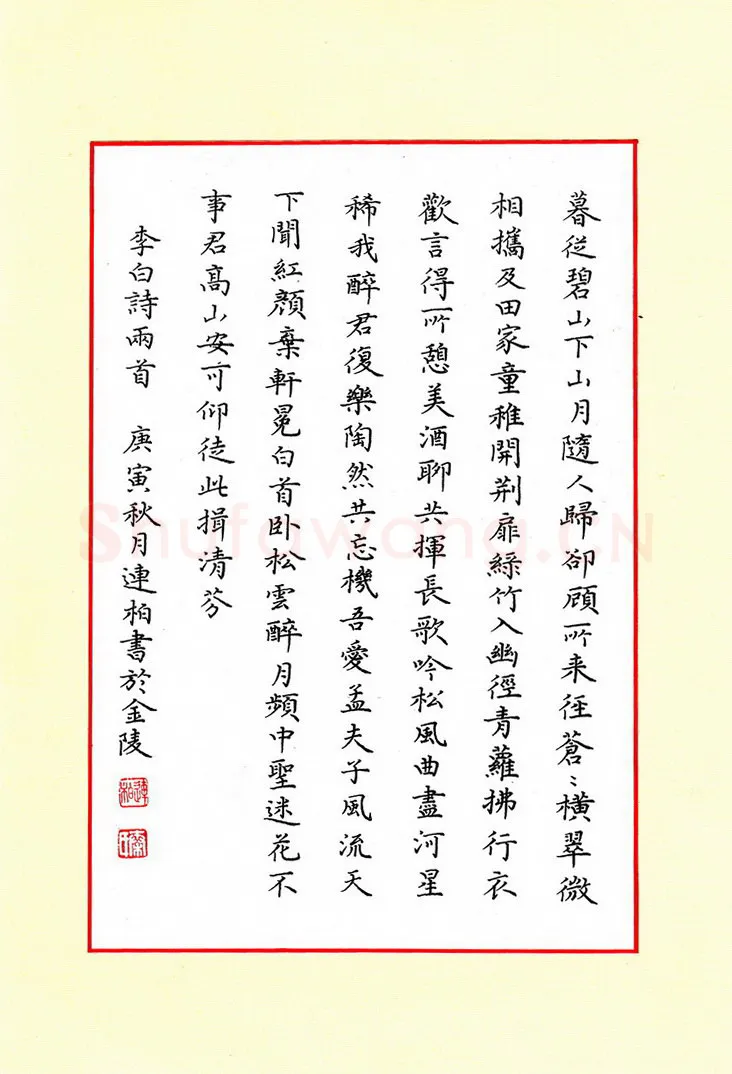 暮従碧山下山月隨人歸卻顧所来徑蒼〻橫翠微
相攜及田家童稚開荆扉綠竹入幽徑青蘿拂行衣
歡言得所憩美酒聊共揮長歌吟松風曲盡河星
稀我醉君復樂陶然共忘機吾愛孟夫子風流天
下聞紅顏棄軒冕白首卧松雲醉月頻中聖迷花不
事君高山安可仰徒此揖清芬
李白詩兩首 庚寅秋月連柏書於金陵
Shufawang.CN